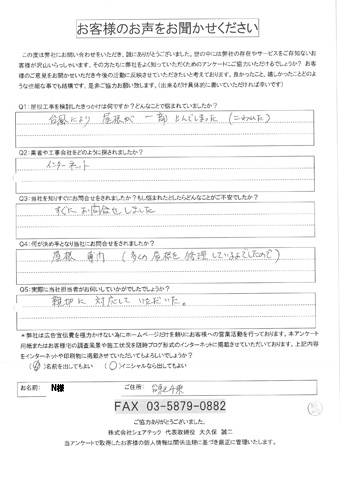 お客様のお声をお聞かせください
この度は弊社にお問い合わせをいただき、誠にありがとうございました。世の中には弊社の存在やサービスをご存知ないお
客様が沢山いらっしゃいます。その方たちに弊社をよく知っていただくためのアンケートにご協力いただけるでしょうか？お
客様のご意見をお聞かせいただき今後の活動に反映させていただきたいと考えております。良かったこと、嬉しかったことどのよ
うな些細な事でも結構です、是非ご協力お願い致します。（出来るだけ具体的に書いていただければ幸いです）
Q1：屋根工事を検討したきっかけは何ですか？どんなことで悩まれていましたか？
台風により 屋根が 一部 とんでしまった
Q2：業者や工事会社をどのように探されましたか？
インターネット
Q3：当社を知りすぐにお問合せをされましたか？もし悩まれたとしたらどんなことがご不安でしたか？
すぐにお問合せしました
Q4：何が決め手となり当社にお問合せをされましたか？
屋根 専門 （多くの 屋根を 修理しているようでしたので）
Q5：実際に当社担当者がお伺いしていかがでしたでしょうか？
親切に 対応して いただいた。
＊弊社は広告宣伝費を極力かけない為にホームページだけを頼りにお客様への営業活動を行っております。本アンケート
用紙またはお客様宅の調査風景や施工状況を随時ブログ形式のインターネットに掲載させていただいております。上記内容
をインターネットや印刷物に掲載させていただいてもよろしいでしょうか？
( )名前を出してもよい ( )イニシャルなら出してもよい
お名前： N様 ご住所：
FAX 03-5879-0882
ご協力ありがとうございました。
株式会社シェアテック 代表取締役 大久保 誠二
当アンケートで取得したお客様の個人情報は関係法規に基づき厳正に管理いたします。